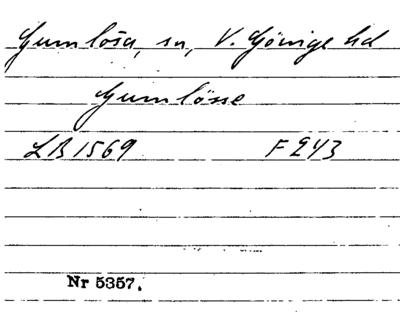 Gumlösa, sn, V. Göinge hd
Gumlösse
LB 1569 F 243
Nr 5357.